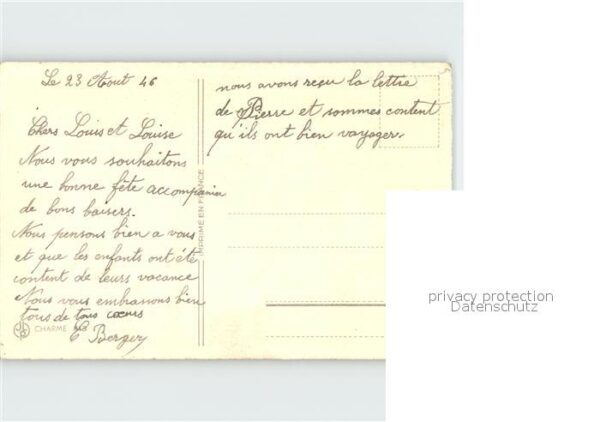 Le 23 Aout 46
Chers Louis et Louise
Nous vous souhaitons
une bonne fête accompanier
de bons baisers.
Nous pensons bien a vous
et que les enfants ont été
content de leurs vacance
Nous vous embrassons bien
tous de tous cœurs
Berger
CHARME
IMPRIMÉ EN FRANCE
nous avons reçu la lettre
de Pierre et sommes content
qu'ils ont bien voyager.
privacy protection
Datenschutz